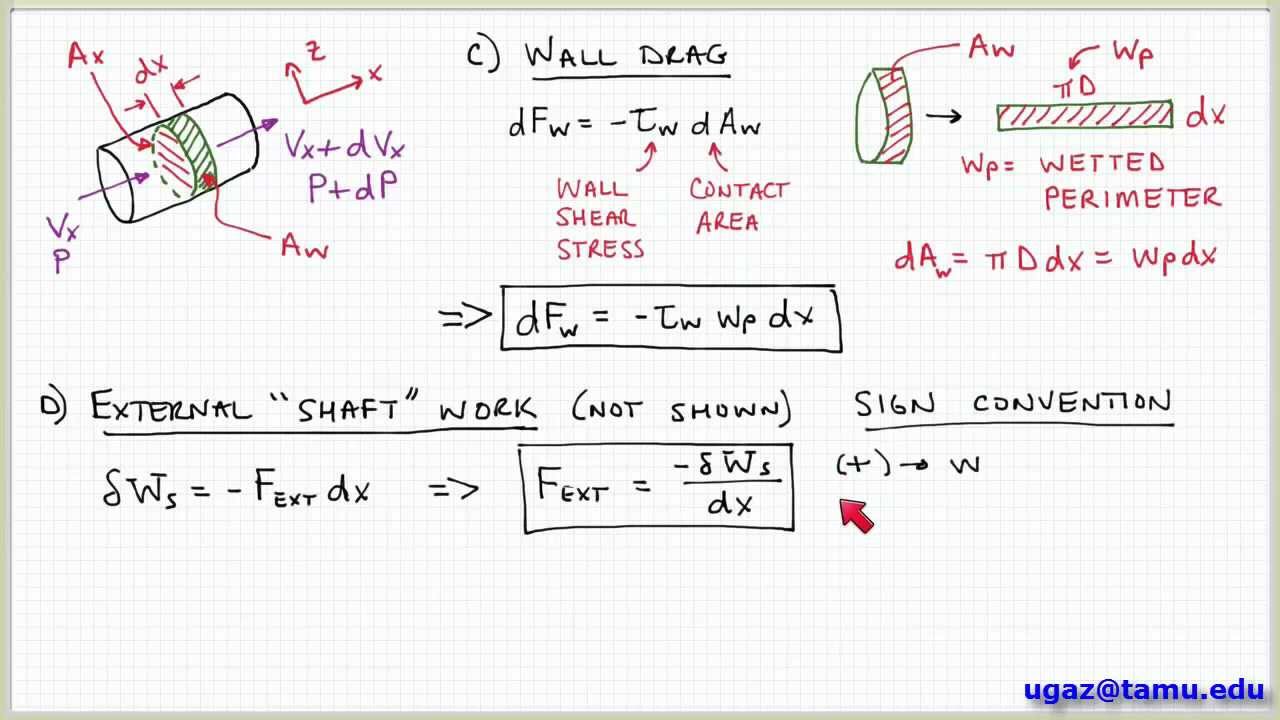 Ax
dx
z
x
Vx+dVx
P+dP
Vx
P
Aw
C) WALL DRAG
dFw = -τw dAw
WALL SHEAR STRESS
CONTACT AREA
Aw
Wp
πD
dx
Wp = WETTED
PERIMETER
dAw = πD dx = Wp dx
=> dFw = -τw Wp dx
D) EXTERNAL "SHAFT" WORK (NOT SHOWN)
SIGN CONVENTION
δWs = -FEXT dx => FEXT = -δWs / dx
(+) → W
ugaz@tamu.edu